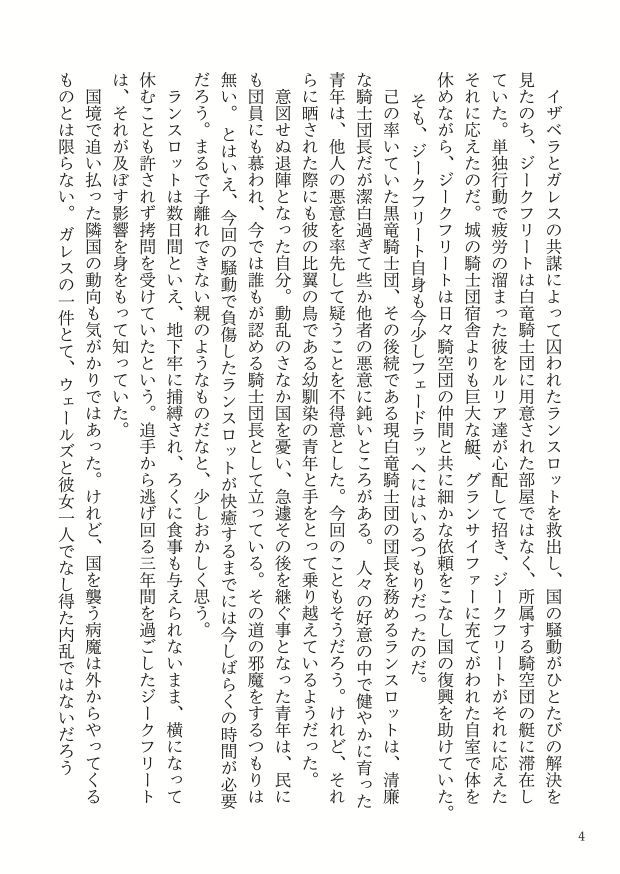 イザベラとガレスの共謀によって囚われたランスロットを救出し、国の騒動がひとたびの解決を
見たのち、ジークフリートは白竜騎士団に用意された部屋ではなく、所属する騎空団の艇に滞在し
ていた。単独行動で疲労の溜まった彼をルリア達が心配して招き、ジークフリートがそれに応えた
それに応えたのだ。城の騎士団宿舎よりも巨大な艇、グランサイファーに充てがわれた自室で体を
休めながら、ジークフリートは日々騎空団の仲間と共に細かな依頼をこなし国の復興を助けていた。
そも、ジークフリート自身も今少しフェードラッヘにはいるつもりだったのだ。
己の率いていた黒竜騎士団、その後続である現白竜騎士団の団長を務めるランスロットは、清廉
な騎士団長だが潔白過ぎて些か他者の悪意に鈍いところがある。人々の好意の中で健やかに育った
青年は、他人の悪意を率先して疑うことを不得意とした。今回のこともそうだろう。けれど、それ
らに晒された際にも彼の比翼の鳥である幼馴染の青年と手をとって乗り越えているようだった。
意図せぬ退陣となった自分。動乱のさなか国を憂い、急遽その後を継ぐ事となった青年は、民に
も団員にも慕われ、今では誰もが認める騎士団長として立っている。その道の邪魔をするつもりは
無い。とはいえ、今回の騒動で負傷したランスロットが快癒するまでには今しばらくの時間が必要
だろう。まるで子離れできない親のようなものだなと、少しおかしく思う。
ランスロットは数日間といえ、地下牢に捕縛され、ろくに食事も与えられないまま、横になって
休むことも許されず拷問を受けていたという。追手から逃げ回る三年間を過ごしたジークフリート
は、それが及ぼす影響を身をもって知っていた。
国境で追い払った隣国の動向も気がかりではあった。けれど、国を襲う病魔は外からやってくる
ものとは限らない。ガレスの一件とて、ウェールズと彼女一人でなし得た内乱ではないだろう
4